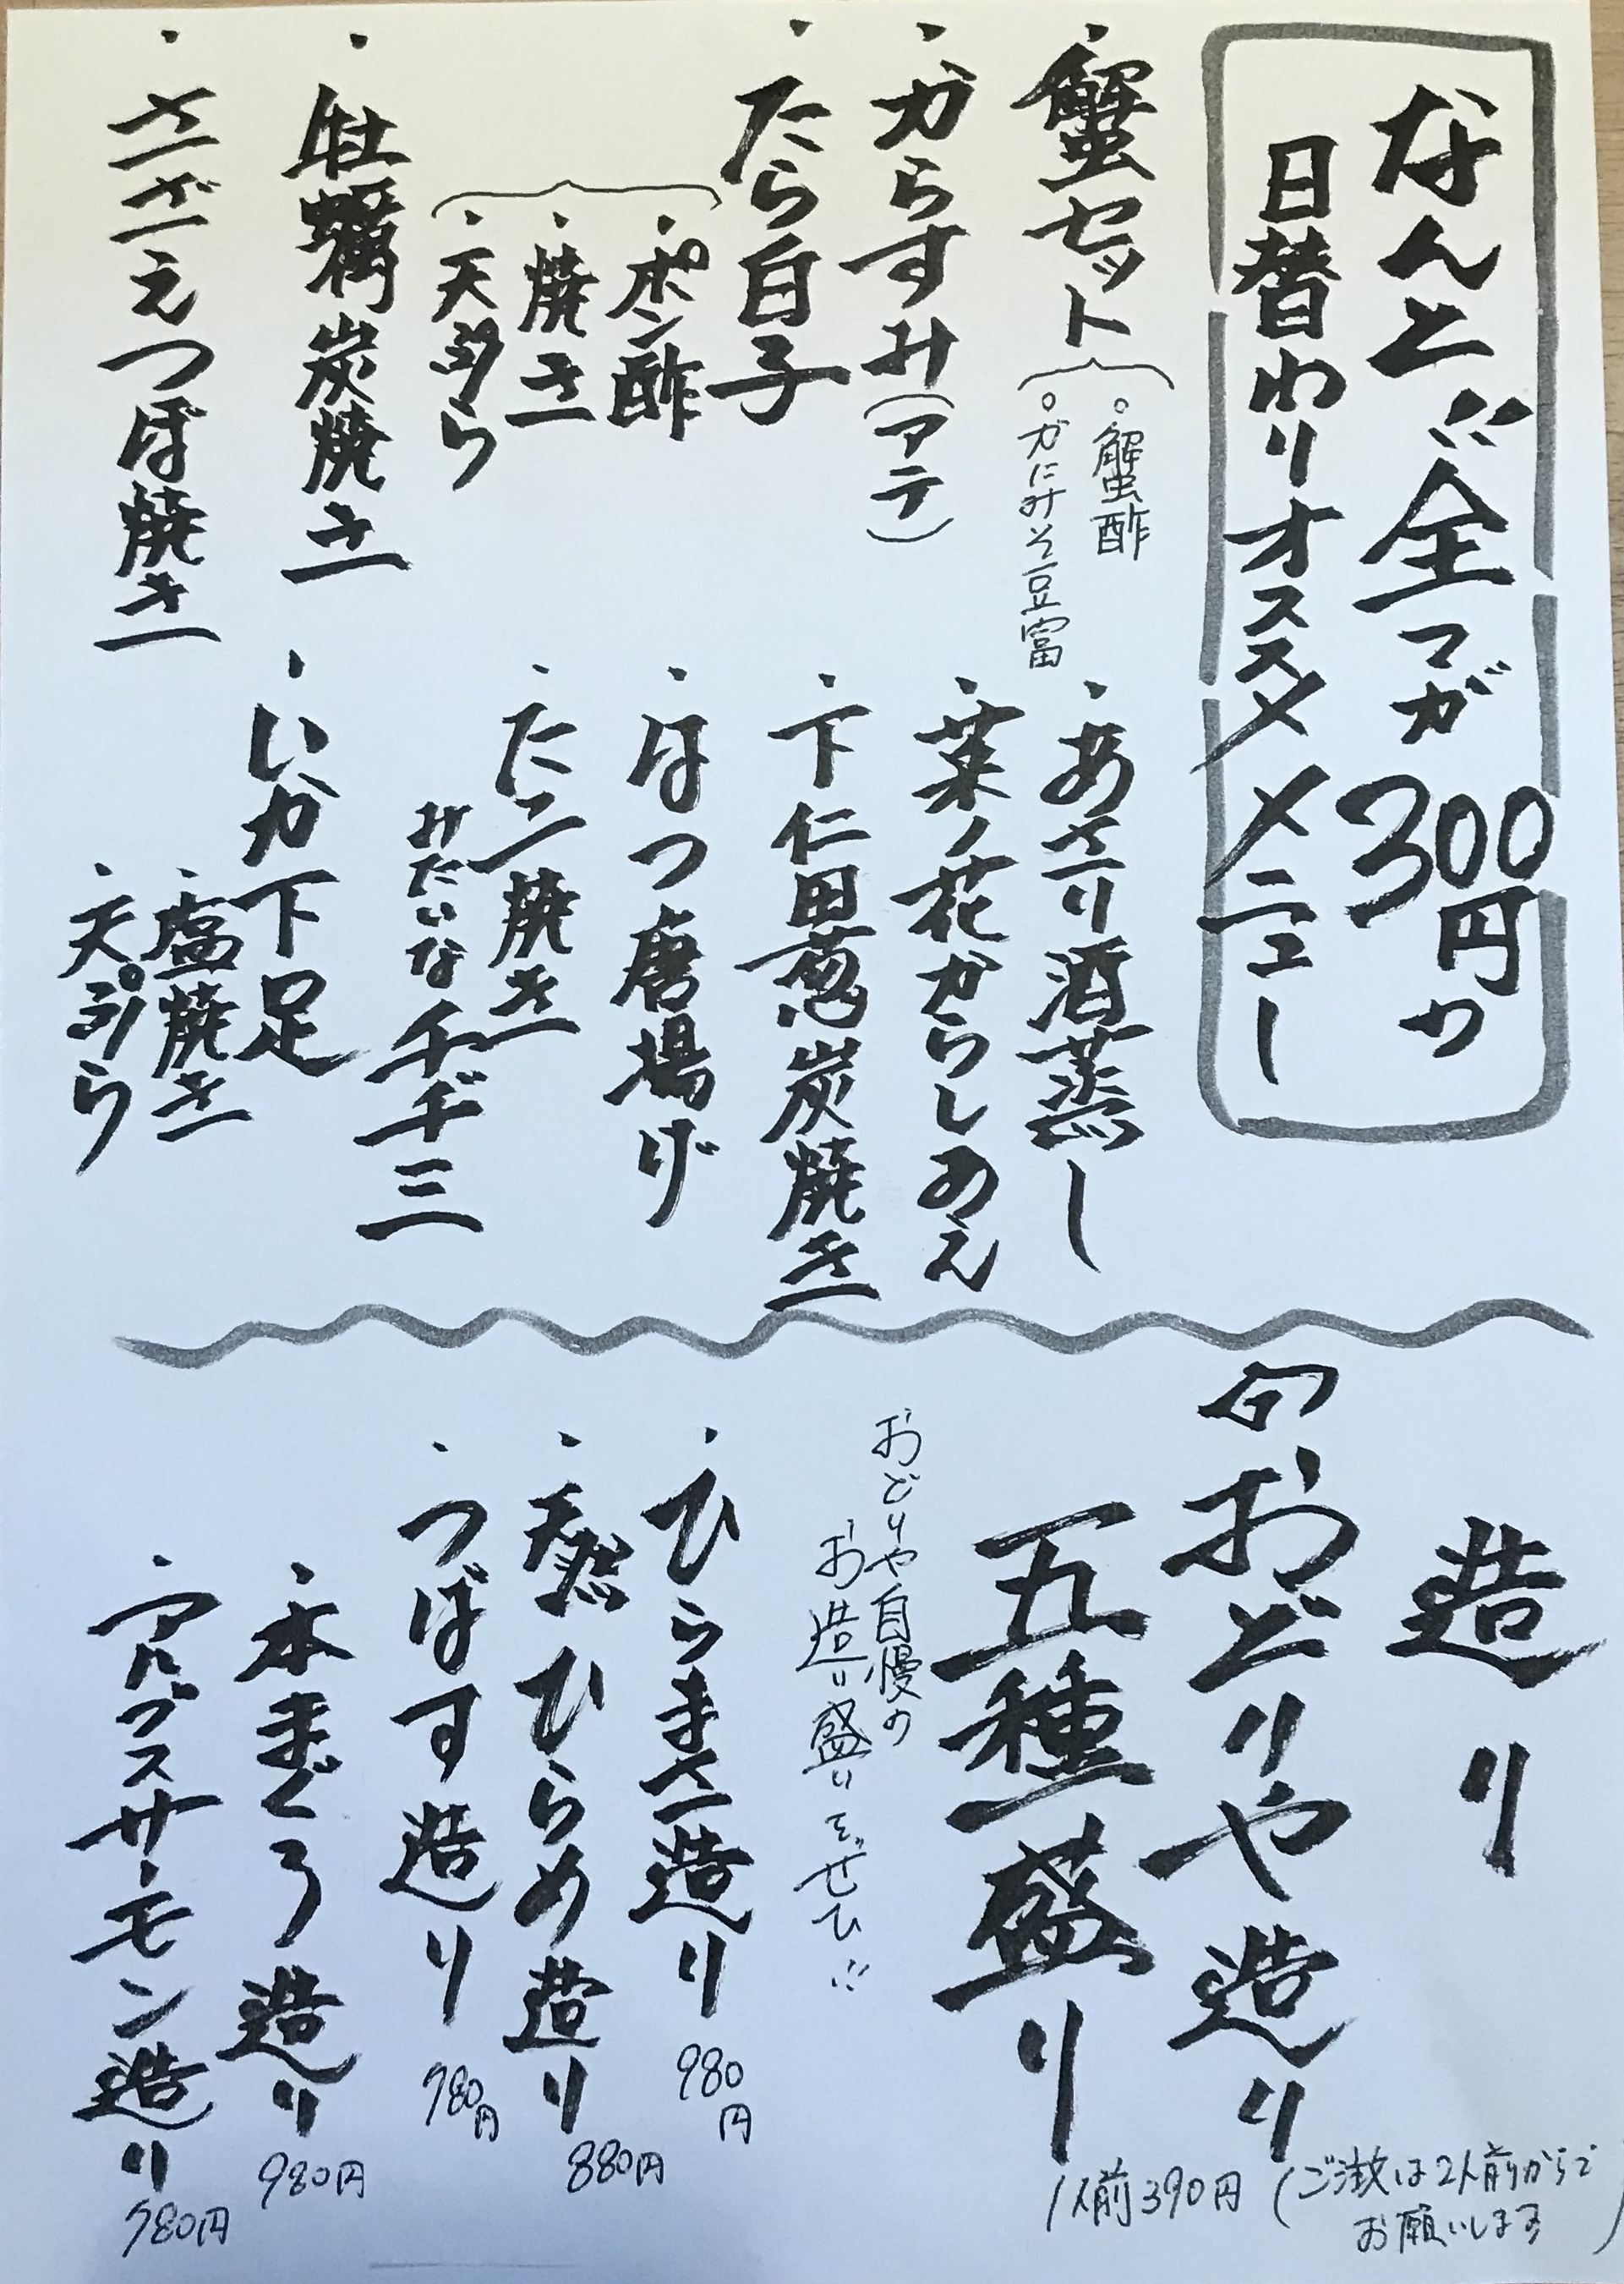 なんと!!全フガ300円の
日替わりオススメメニュー
・蟹セット
。蟹酢
。がにみそ豆富
・からすみ(アテ)
・たら白子
・ポン酢
・焼き
・天ぷら
・牡蠣炭焼き
・さざえつぼ焼き
・あさり酒蒸し
・菜ノ花からしあえ
・下仁田葱炭焼き
・はつ唐揚げ
・たこ焼き
みたいなチヂミ
・いか下足
・塩焼き
・天ぷら
造り
旬おどりや造り
五種盛り
1人前390円(ご注文は2人前からで
お願いします)
おどりや自慢の
お造り盛りをぜひ!!
・ひらまさ造り
980円
・天然ひらめ造り
880円
・つばす造り
780円
・本まぐろ造り
980円
・アトランスサーモン造り
780円